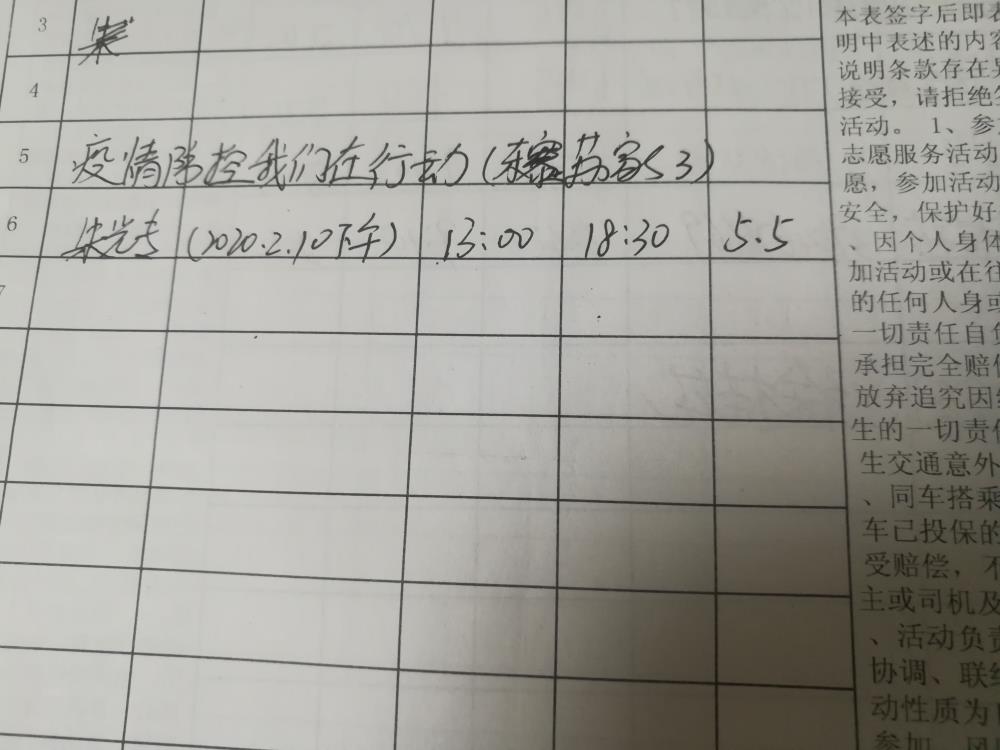 3
4
5 疫情防控我们在行动(苏家 3)
6 朱光 (2020.2.10下午) 13:00 18:30 5.5
7
本表签字后即表
明中表述的内容
说明条款存在异
接受，请拒绝签
活动。 1、参加
志愿服务活动
愿，参加活动
安全，保护好
、因个人身体
加活动或在往
的任何人身或
一切责任自负
承担完全赔偿
放弃追究因
生的一切责任
生交通意外
、同车搭乘
车已投保的
受赔偿，不
主或司机及
、活动负责
协调、联络
动性质为
参加，风